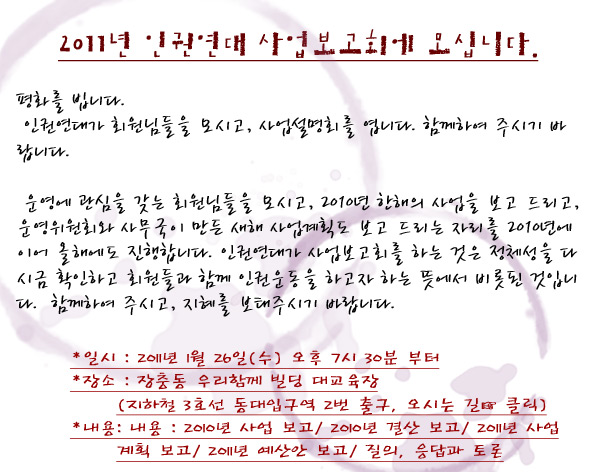 2011년 인권연대 사업보고회에 모십니다.
평화를 빕니다.
인권연대가 회원님들을 모시고, 사업설명회를 엽니다. 함께하여 주시기 바
랍니다.
운영에 관심을 갖는 회원님들을 모시고, 2010년 한해의 사업을 보고 드리고,
운영위원회와 사무국이 만든 새해 사업계획도 보고 드리는 자리를 2010년에
이어 올해에도 진행합니다. 인권연대가 사업보고회를 하는 것은 정체성을 다
시금 확인하고 회원들과 함께 인권운동을 하고자 하는 뜻에서 비롯된 것입니
다. 함께하여 주시고, 지혜를 보태주시기 바랍니다.
*일시 : 2011년 1월 26일(수) 오후 7시 30분 부터
*장소 : 장충동 우리함께 빌딩 대교육장
(지하철 3호선 동대입구역 2번 출구, 오시는 길☞ 클릭)
*내용: 내용 : 2010년 사업 보고/ 2010년 결산 보고/ 2011년 사업
계획 보고/ 2011년 예산안 보고/ 질의, 응답과 토론